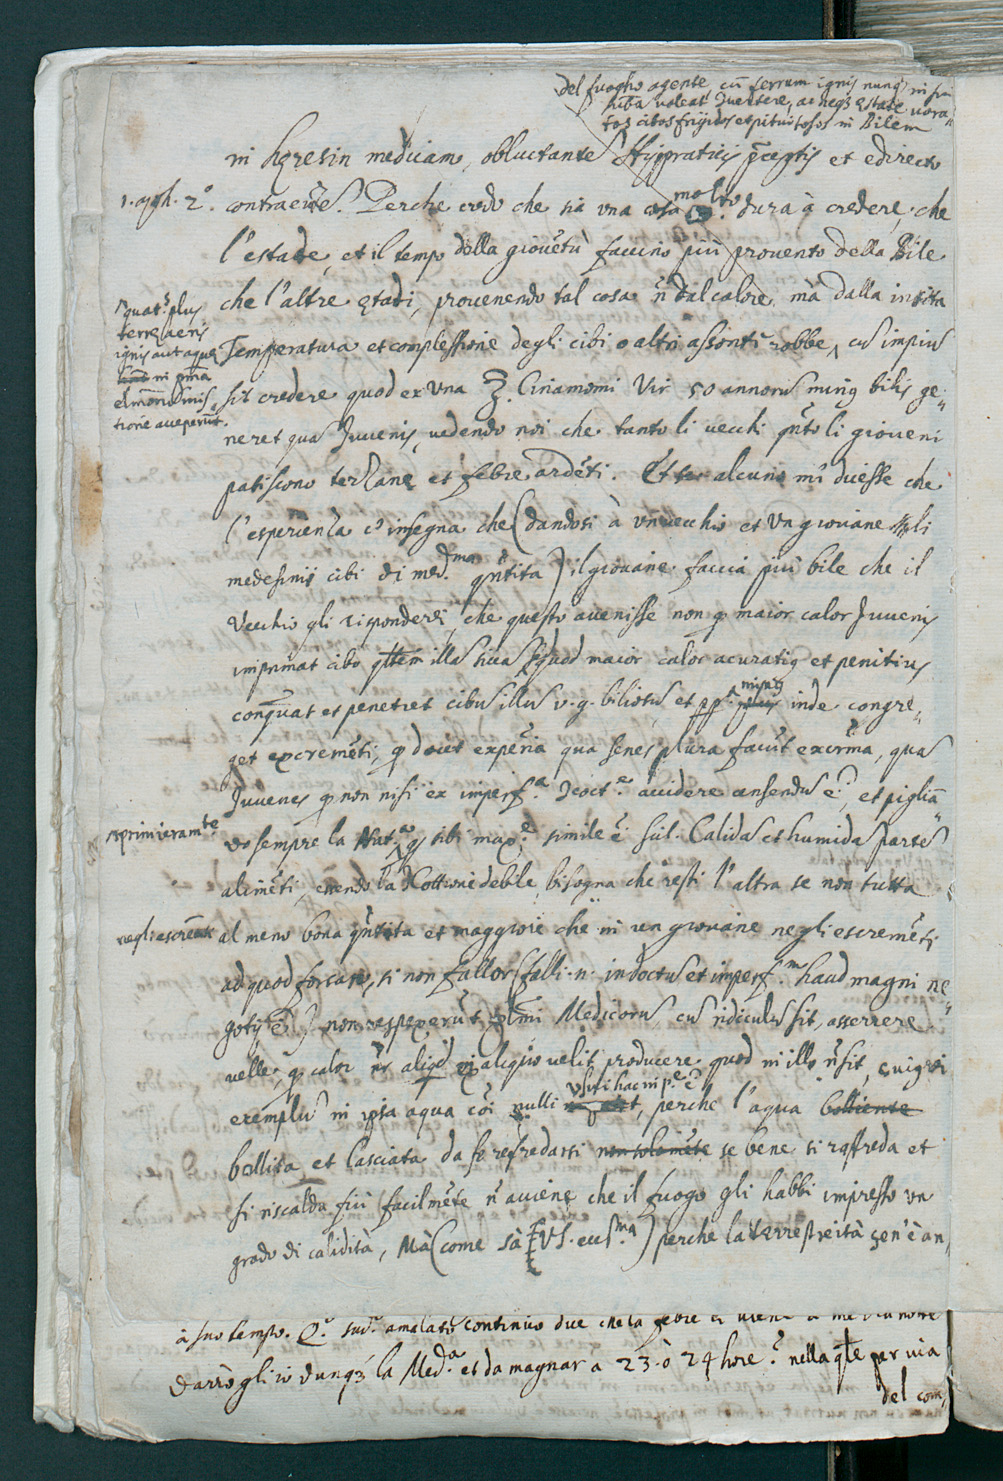 del fuogho agente, cū ferrum ignis nunq̄ in
valeat Juertere, ac neq3 estate vora
tos cibos frigidos et pituitosos in Bilem
in hęresin medicam, obluctantes Hippraticis p̄ceptis et edirecto
1. aph. 2.° contraeūtes. Perche credo che sia una cosa molto dura à credere, che
l'estade, et il tempo della giouētù faccino più prouento della Bile
che l'altre ętadi, prouenendo tal cosa n̄ dal calore mà dalla insita
quat.s plus
terrę aeris
ignis aut aquę
in prīa
tione acceperūt.
Temperatura et complessione degli cibi o altri assonti robbe, cū impiū
sit credere quod ex una ℥. Cinamomi Vir 50 annorū minq bilis ge„
neret quā Juvenis, uedendo noi che tanto li uecchi qūto li gioueni
patiscono terzane et febre ardēti. Et se alcuno mi dicesse che
l'esperienza c'insegna che (dandosi à un uecchio et un giouane li
medesimi cibi di med.ma qūtita) il giouane faccia più bile che il
Vecchio gli risponderei, che questo auenisse non q maior calor Juuenis
imprimat cibo qltem illā suā sed quod maior calor acuratiq et penitius
conquat et penetret cibū illū v.g. biliosū, et pp.a minq inde congre„
get excremēti, q docet experīa quā senes plura faciūt excrīma, quā
Juuenes q non nisi ex imperf.a Coct.e accidere censendū ē, et piglia„
rprimieramte.
do sempre la Nat.a q sibi max.e simile ē sul. Calidā et humidā partē
alimēti, essendo la Cottione debile bisogna che resti l'altra se non tutta
negli escremēti al meno bona qūtita et maggiore che in un giouane negli escremēti
ad quod forsan, si non fallor (falli .n. indoctū et imperf.m haud magni ne„
gotij ē) non respexerūt plīmi Medicorū, cū ridiculū sit, asserere
uelle, q calor aliqd ex aliquo uelit producere quod in illo n̄ sit, cuiq rei
exemplū in ipsa aqua cōi nulli usui hac in p.e ē, perche l'aqua bolliente
bollita et lasciata da se refredarsi non solamēte se bene si raffreda et
si riscalda più facilmēte n̄ auiene che il fuogo gli habbi impresso un
grado di calidità, Mà (come sà VS. ecc.ma) perche la terrestreità sen'è an„
à suo tempo. Q.o sud.o amalato continuo due che la febre
darrogli io dunq3 la Med.a et da magnar a 23. ò 24 hore ? nella qle per uia
del com„